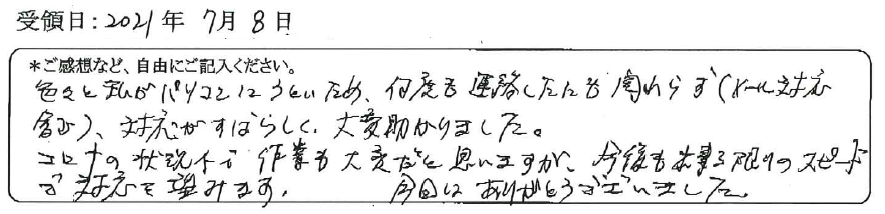 受領日：2021年 7月 8日
*ご感想など、自由にご記入ください。
色々と私がパソコンにうといため、何度も連絡したにも関わらず（メール対応
含む）、対応がすばらしく、大変助かりました。
コロナの状況下で作業も大変だと思いますが、今後も出来る限りのスピード
で対応を望みます。 今回はありがとうございました。